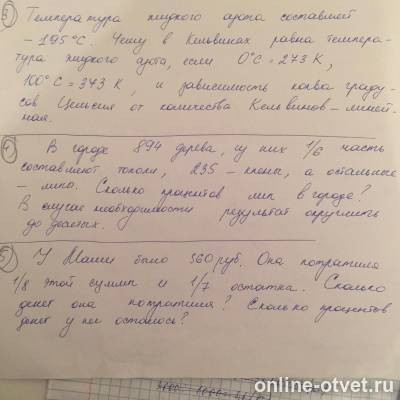 3) Температура жидкого азота составляет
– 195°C. Чему в Кельвинах равна темпера-
тура жидкого азота, если 0°C = 273 К,
100°C = 373 К, и зависимость кол-ва граду-
сов Цельсия от количества Кельвинов – линей-
ная.
4) В городе 894 дерева, из них 1/6 часть
составляют тополи, 235 – клёны, а остальные
– липы. Сколько процентов лип в городе?
В случае необходимости результат округлить
до десятых.
5) У Маши было 560 руб. Она потратила
1/8 этой суммы и 1/7 остатка. Сколько
денег она потратила? Сколько процентов
денег у неё осталось?
online-otvet.ru